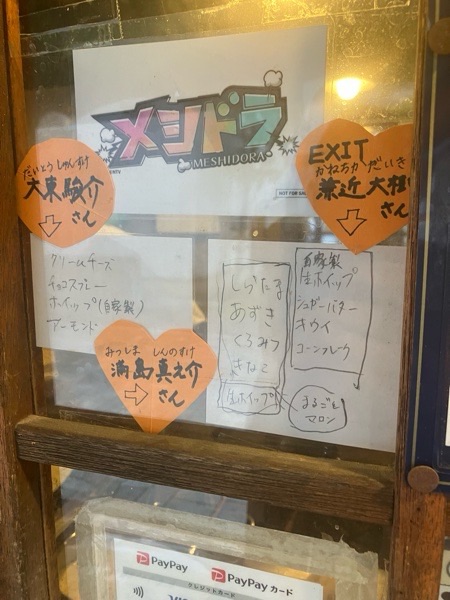 メシドラ
MESHIDORA
©NTV
NOT FOR SALE
だいとう しゅんすけ
大東駿介
さん
EXIT
かねちか だいき
兼近 大樹
さん
クリームチーズ
チョコスプレー
ホイップ(自家製)
アーモンド
みつしま しんのすけ
満島真之介
さん
しらたま
あずき
くろみつ
きなこ
生ホイップ
自家製
生ホイップ
シュガーバター
キウイ
コーンフレーク
まるごと
マロン
PayPay
PayPay カード
クレジットカード